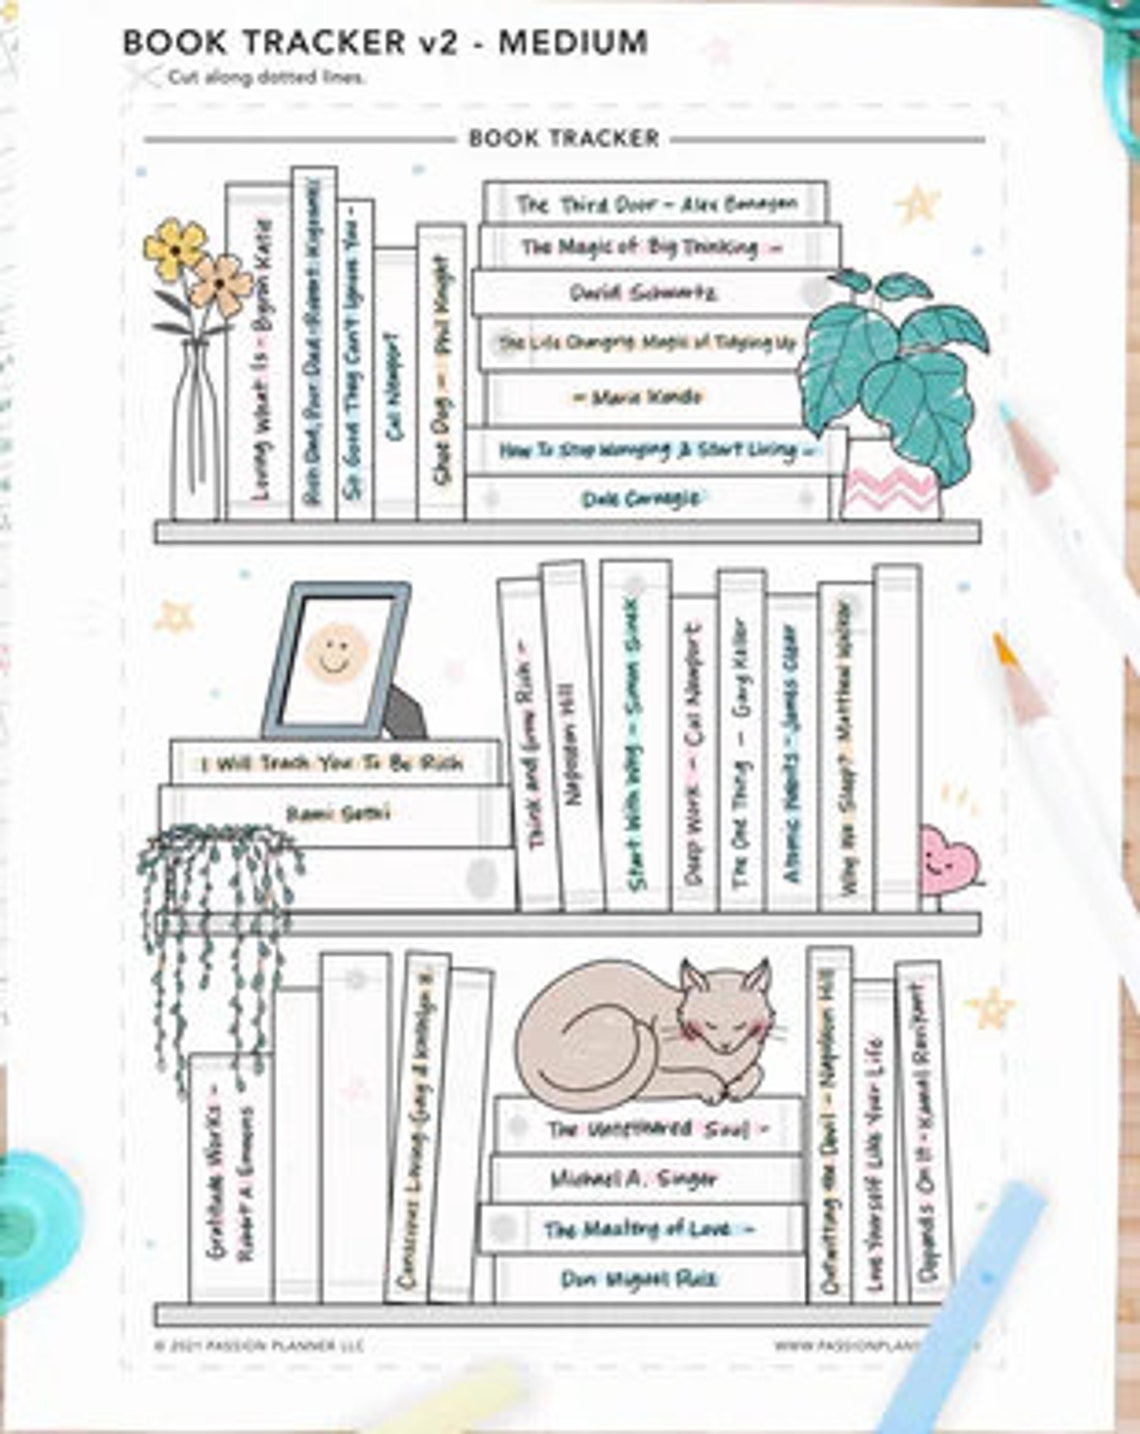 BOOK TRACKER v2 - MEDIUM
Cut along dotted lines.
BOOK TRACKER
Loving What Is - Byron Katie
Rich Dad, Poor Dad - Robert Kiyosaki
So Good They Can't Ignore You -
Cal Newport
Shoe Dog - Phil Knight
The Third Door - Alex Banayan
The Magic of Big Thinking -
David Schwartz
The Life Changing Magic of Tidying Up
- Marie Kondo
How To Stop Worrying & Start Living -
Dale Carnegie
I Will Teach You To Be Rich
Rami Sethi
Think and Grow Rich -
Napoleon Hill
Start With Why - Simon Sinek
Deep Work - Cal Newport
The One Thing - Gary Keller
Atomic Habits - James Clear
Why We Sleep? Matthew Walker
Gratitude Works -
Robert A. Emmons
Conscious Loving Gay & Kathlyn H.
The Untethered Soul -
Michael A. Singer
The Mastery of Love -
Don Miguel Ruiz
Outwitting the Devil - Napoleon Hill
Love Yourself Like Your Life
Depends On It - Kamal Ravikant
© 2021 PASSION PLANNER LLC